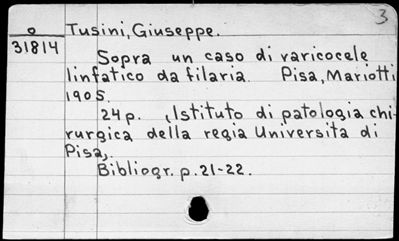 3
o Tusini, Giuseppe.
31814
Sopra un caso di varicocele
linfatico da filaria. Pisa, Mariotti
1905.
24 p. (Istituto di patologia chi-
rurgica della regia Universita di
Pisa).
Bibliogr. p. 21-22.